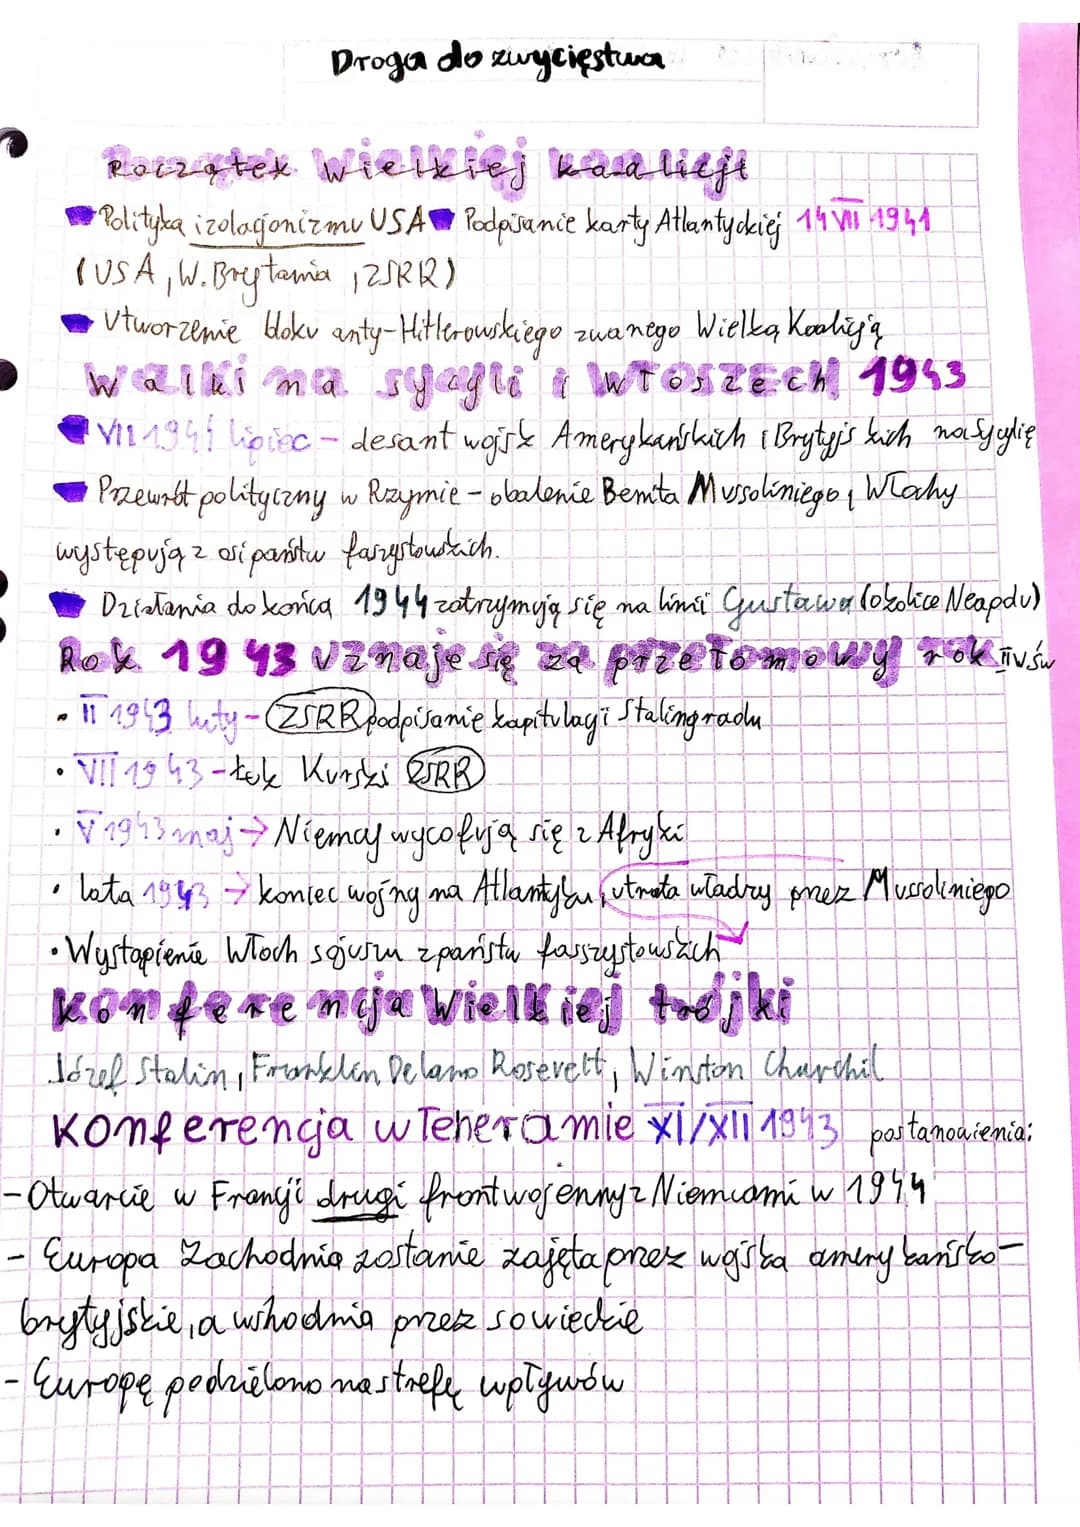 Droga do zwycięstwa
Początek Wielkiej koalicji
Polityka izolacjonizmu USA Podpisanie karty Atlantyckiej 14 VIII 1941
(USA, W. Brytania, ZSRR)
Utworzenie bloku anty-Hitlerowskiego zwanego Wielką Koalicją
Walki na sycyli i WŁOSZECH 1943
lipiec - desant wojsk Amerykańskich i Brytyjskich na Sycylię
Przewrót polityczny w Rzymie - obalenie Benita Mussoliniego, Włochy
występują z osi państw faszystowskich.
Działania do końca 1944 zatrzymują się na linii Gustawa (okolice Neapolu)
Rok 1943 uznaje się za przełomowy rok II WŚw
• II 1943 luty - ZSRR podpisanie kapitulacji Stalingradu
• VII 1943 - Łuk Kurski ZSRR
• V 1943 maj → Niemcy wycofują się z Afryki
• lata 1943 → koniec wojny na Atlantyku, utrata władzy przez Mussoliniego
• Wystąpienie Włoch sojuszu z państw fasszystowskich
Konferencja Wielkiej trójki
Józef Stalin, Franklin Delano Rosevelt, Winston Churchil
Konferencja w Teheranie XI/XII 1943 postanowienia:
- Otwarcie w Francji drugi front wojenny z Niemcami w 1944
- Europa Zachodnia zostanie zajęta przez wojska amerykańsko-
brytyjskie, a wshodnia przez sowieckie
- Europę podzielono na strefę wpływów